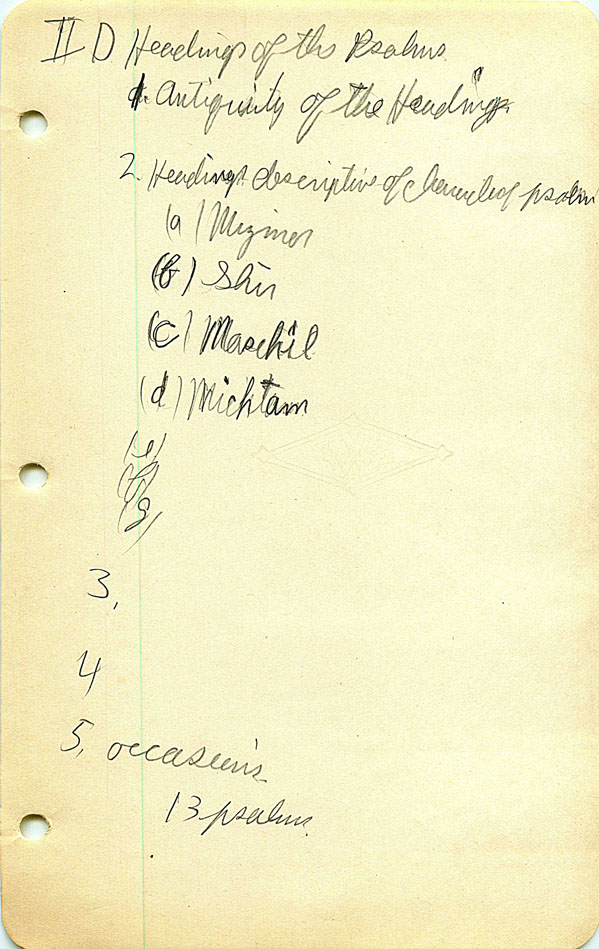 II D Headings of the Psalms
1. Antiquity of the Headings
2. Headings descriptive of character of psalm
(a) Mizmor
(b) Shir
(c) Maschil
(d) Michtam
(e)
(f)
(g)
3.
4
5. occasions
13 psalms